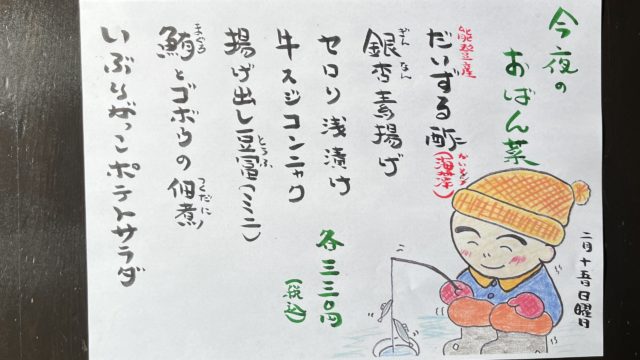 今夜の
おばん菜
能登産
だいずる酢
(海藻)
かいそう
銀杏素揚げ
ぎんなん
セロリ浅漬け
牛スジコンニャク
揚げ出し豆富(ミニ)
とうふ
鮪とゴボウの佃煮
まぐろ
つくだに
いぶりがっこポテトサラダ
各三三〇円
(税込)
二月十五日日曜日